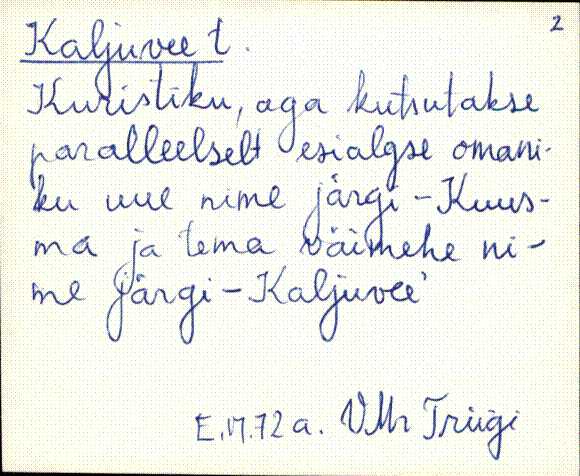 2
Kaljuvee t.
Kuristiku, aga kutsutakse
paralleelselt esialgse omani-
ku uue nime järgi - Kuus-
ma ja tema väimehe ni-
me järgi - Kaljuvee'
72 a. VMr Triigi